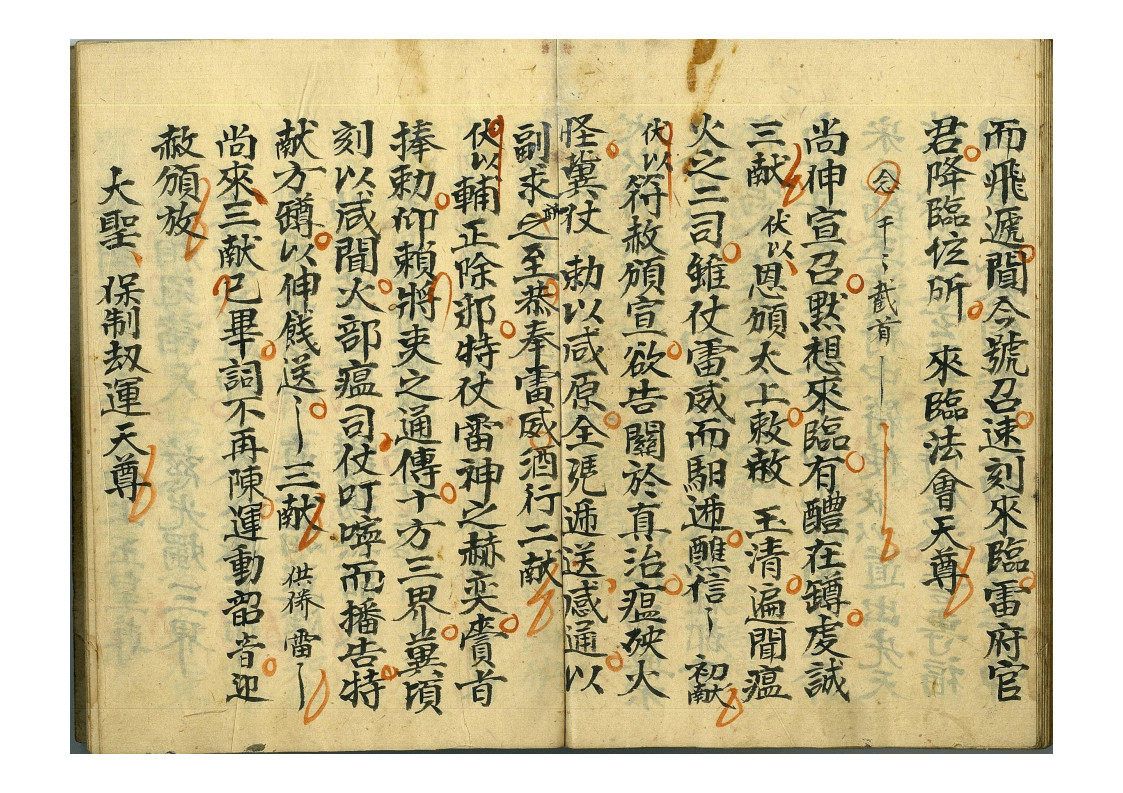 而飛遞聞今號召速刻來臨雷府官
君降臨位所 來臨法會天尊
念千〻截首
尚伸宣召默想來臨有醴在罇虔誠
三献 伏以恩頒太上敕赦 玉清遍聞瘟
火之二司雖仗雷威而馹遞醮信 初献
伏以符赦頒宣欲告關於真治瘟殃火
怪冀仗 勅以咸原全凴逓送感通以
副求之至恭奉雷威酒行二献
伏以輔正除邪特仗雷神之赫奕賫首
捧勅仰賴將吏之通傳十方三界冀頃
刻以咸聞火部瘟司仗叮嚀而播告特
献方罇以伸餞送 三献 供養 雷
尚來三献已畢詞不再陳運動韶音迎
赦頒放
大聖保制劫運天尊